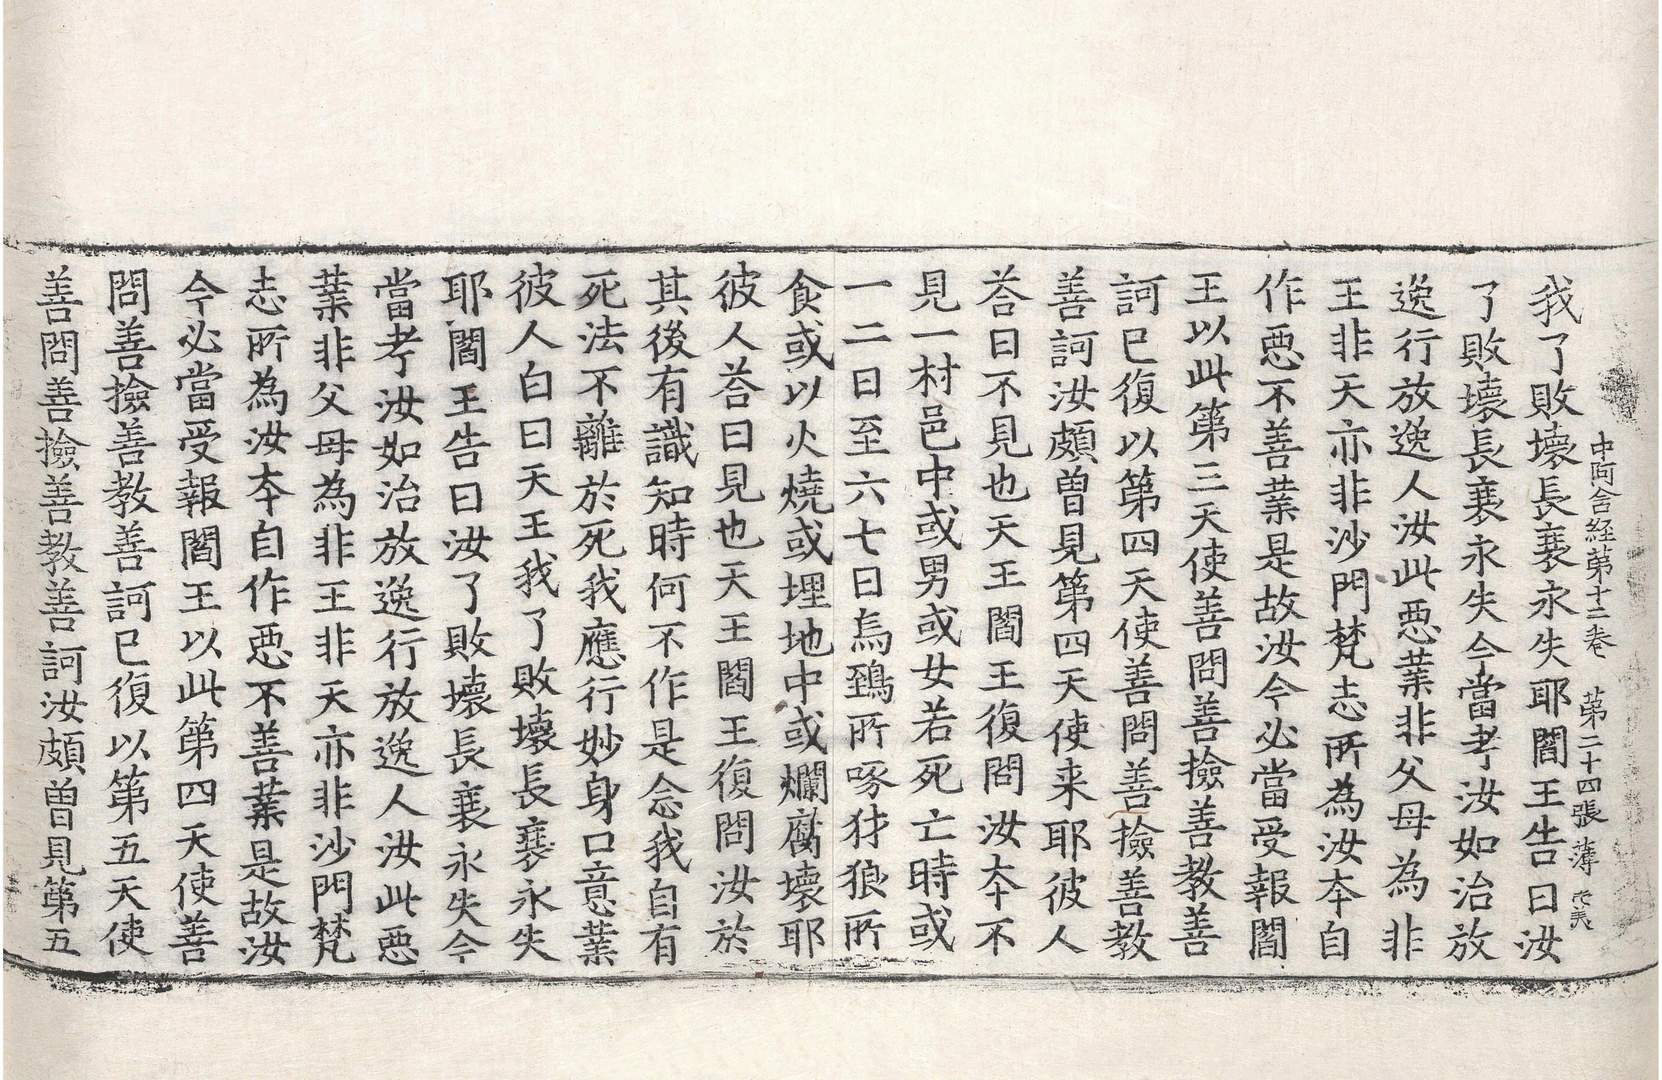 中阿含経苐十二卷 苐二十四張 薄
我了敗壞長衰永失耶閻王告曰汝
了敗壞長衰永失今當考汝如治放
逸行放逸人汝此惡業非父母為非
王非天亦非沙門梵志所為汝夲自
作惡不善業是故汝今必當受報閻
王以此第三天使善問善撿善教善
訶已復以第四天使善問善撿善教
善訶汝頗曾見第四天使来耶彼人
荅曰不見也天王閻王復問汝夲不
見一村邑中或男或女若死亡時或
一二日至六七日烏鵄所啄犲狼所
食或以火燒或埋地中或爛腐壞耶
彼人荅曰見也天王閻王復問汝於
其後有識知時何不作是念我自有
死法不離於死我應行妙身口意業
彼人白曰天王我了敗壞長衰永失
耶閻王告曰汝了敗壞長衰永失今
當考汝如治放逸行放逸人汝此惡
業非父母為非王非天亦非沙門梵
志所為汝夲自作惡不善業是故汝
今必當受報閻王以此第四天使善
問善撿善教善訶已復以第五天使
善問善撿善教善訶汝頗曾見第五